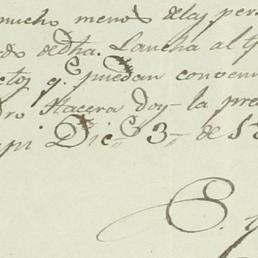 mucho menos delas per
do dedha. Lancha al
ctos q.e puedan conven
dro Hacera doy la pre
Dic.e 3 de 1
S.